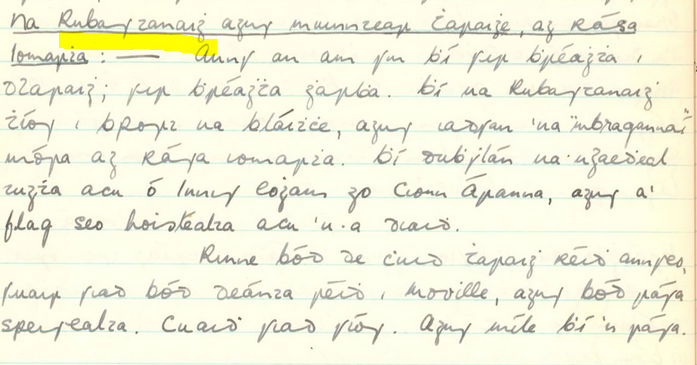 Na Rubastanaiġ agus muinntear Ṫaraiġe, ag Rása
Iomarṫa : — Anns an am sin bí fir bréaġṫa i
dTaraiġ; fir bréaġṫa garḃa. Bí na Rubastanaiġ
ṫíos i bPort na bláiṫċe, agus iadsan 'na "mbragannaí"
móra ag Rása iomarṫa. Bí duḃślán na nGaeḋeal
tugṫa acu ó Innis Eoġain go Cionn Árann, agus a'
flag seo hoisteálta acu 'n-a diaid.
Rinne bád de ċuid Ṫaraiġ réid annseo,
fuair siad bád déanta réid i Moville, agus bád rása
speisealta. Cuaid siad síos. Agus míle bí 'n rása.